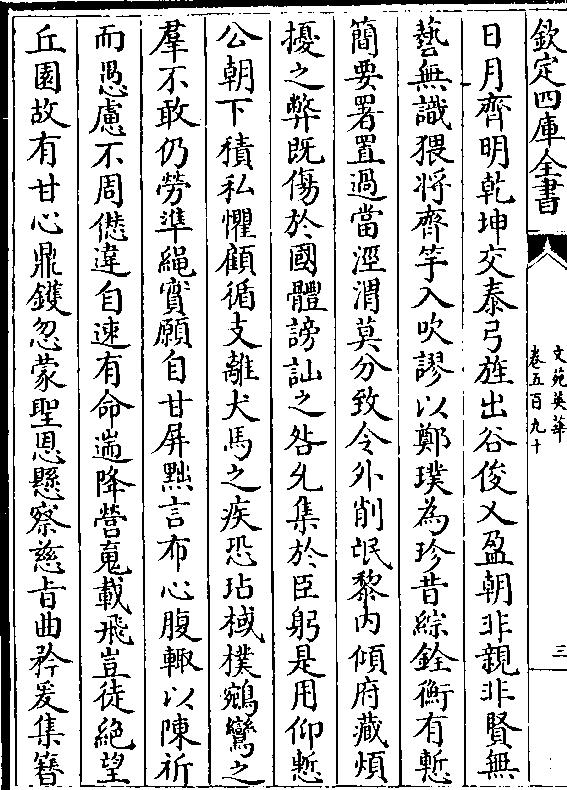 欽定四庫全書
文苑英華
卷五百九十
三
日月齊明乾坤交泰弓旌出谷俊乂盈朝非親非賢無
藝無識猥將齊竽入吹謬以鄭璞為珍昔綜銓衡有慙
簡要署置過當涇渭莫分致令外削氓黎内傾府藏煩
擾之弊既傷於國體謗訕之咎乆集於臣躬是用仰慙
公朝下積私懼顧循支離犬馬之疾恐玷棫樸鵷鸞之
羣不敢仍勞準繩實願自甘屏黜言布心腹輙以陳祈
而愚慮不周僽違自速有命遄降營䰟載飛豈徒絶望
丘園故有甘心鼎鑊忽蒙聖恩懸察慈㫖曲矜爰集簪